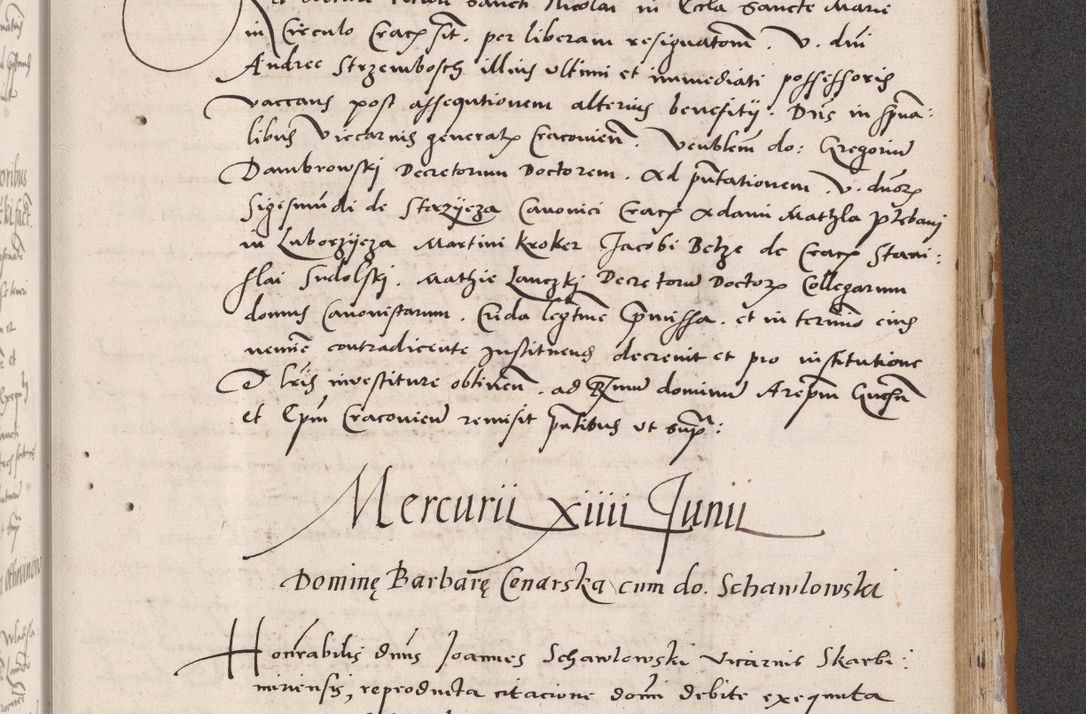 Sancti Nicolai in Eccla Sancte Marie
in Circulo Crac sit. per liberam resignatom. V. dni
Andree Strzembosch illius ultimi et immediati possessoris
vaccans post assequtionem alterius benefitij. Dns in spua:
libus Viccarius generalx Cracovien. Venblem do: Gregorium
Dambrowski Decretorum Doctorem. Ad pntationem. V. dnorx
Sigismudi de Stazijcza Canonici Crac Adami Mathzla plebanj
in Luborzijcza Martini Kroker Jacobi Betze de Crac Stani:
slai Sudolski. Mathie Lanczkj Decretoru Doctorx Collegarum
domus Canonistarum. Crida legtme pmissa. et in termio eius
nemine contradicente Instituens decrevit et pro institutione
Et lris investiture obtinen. ad Rmum dominum Arepm Gnesn
et Epm Cracovien remisit pntibus ut supra:
Mercurii xiiii Junii
Dominę Barbarę Conarska cum do. Schawlowski
Honrabilis dnus Joannes Schawlowski Vicarius Skarbi:
miriensis, reproducta citacione domi debite exequuta